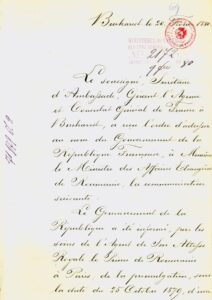 Bucharest le 20 Février 1880
Le soussigné, Secrétaire
d'Ambassade Gérant l'Agence
et Consulat Général de France à
Bucharest, a reçu l'ordre d'adresser
au nom du Gouvernement de la
République Française, à Monsieur
le Ministre des Affaires Etrangères
de Roumanie, la communication
suivante :
Le Gouvernement de la
République a été informé, par les
soins de l'Agent de Son Altesse
Royale le Prince de Roumanie
à Paris de la promulgation, sous
la date du 25 Octobre 1879, d'une